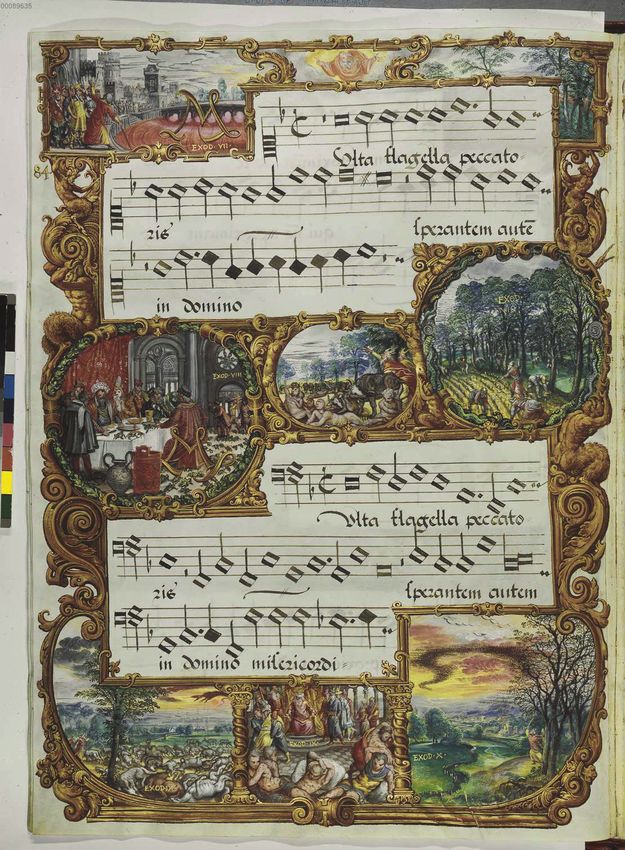 00089635
EXOD·VII·
M
Ulta flagella peccato
84
ris sperantem autē
in domino
EXOD·VIII·
Ulta flagella peccato
ris sperantem autem
in domino misericordi
EXOD·IX·
EXOD·X·